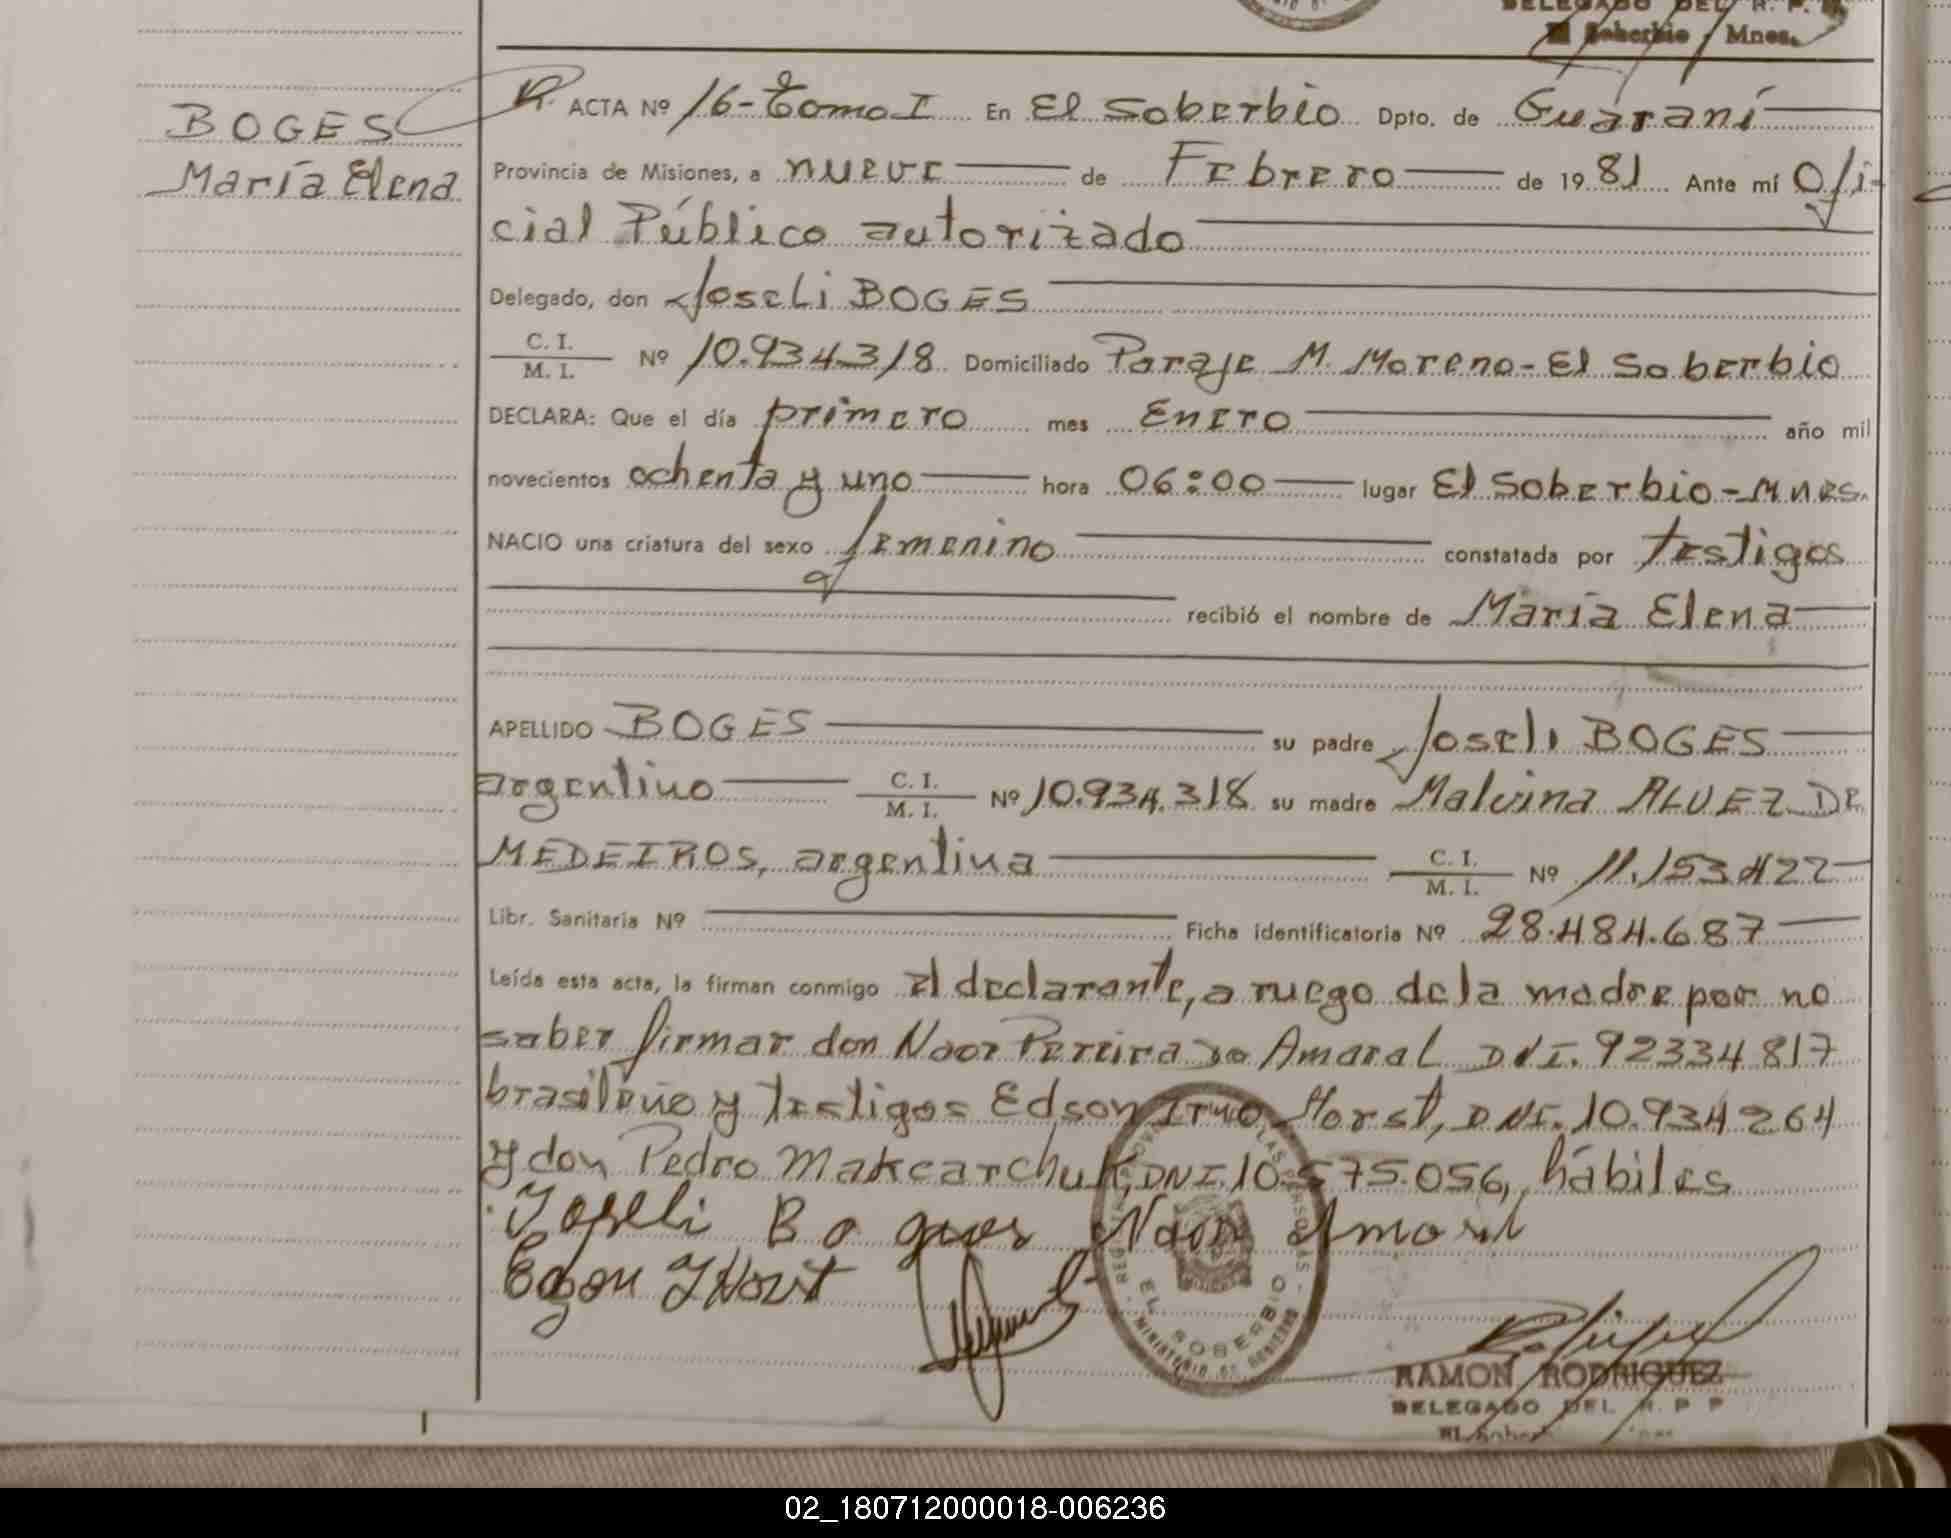 DELEGADO DEL R. P. P.
El Soberbio - Mnes.
BOGES
María Elena
ACTA Nº 16 - Tomo I En El Soberbio Dpto. de Guaraní
Provincia de Misiones, a nueve de Febrero de 1981 Ante mí Ofi-
cial Público autorizado
Delegado, don Joseli BOGES
C. I.
M. I. Nº 10.934.318 Domiciliado Paraje M. Moreno - El Soberbio
DECLARA: Que el día primero mes Enero año mil
novecientos ochenta y uno hora 06:00 lugar El Soberbio - Mnes.
NACIO una criatura del sexo femenino constatada por testigos
recibió el nombre de María Elena
APELLIDO BOGES su padre Joseli BOGES
argentino C. I. M. I. Nº 10.934.318 su madre Malvina ALVEZ DE
MEDEIROS, argentina C. I. M. I. Nº 11.153.422
Libr. Sanitaria Nº Ficha identificatoria Nº 28.484.687
Leída esta acta, la firman conmigo el declarante, a ruego de la madre por no
saber firmar don Naor Pereira do Amaral DNI. 92334817
brasileño y testigos Edson Irno Horst, DNI. 10.934264
y don Pedro Makcarchuk, DNI. 10.575.056, hábiles
Joseli Bogues Naor Amaral
EL SOBERBIO
RAMON RODRIGUEZ
DELEGADO DEL R. P P
02_180712000018-006236